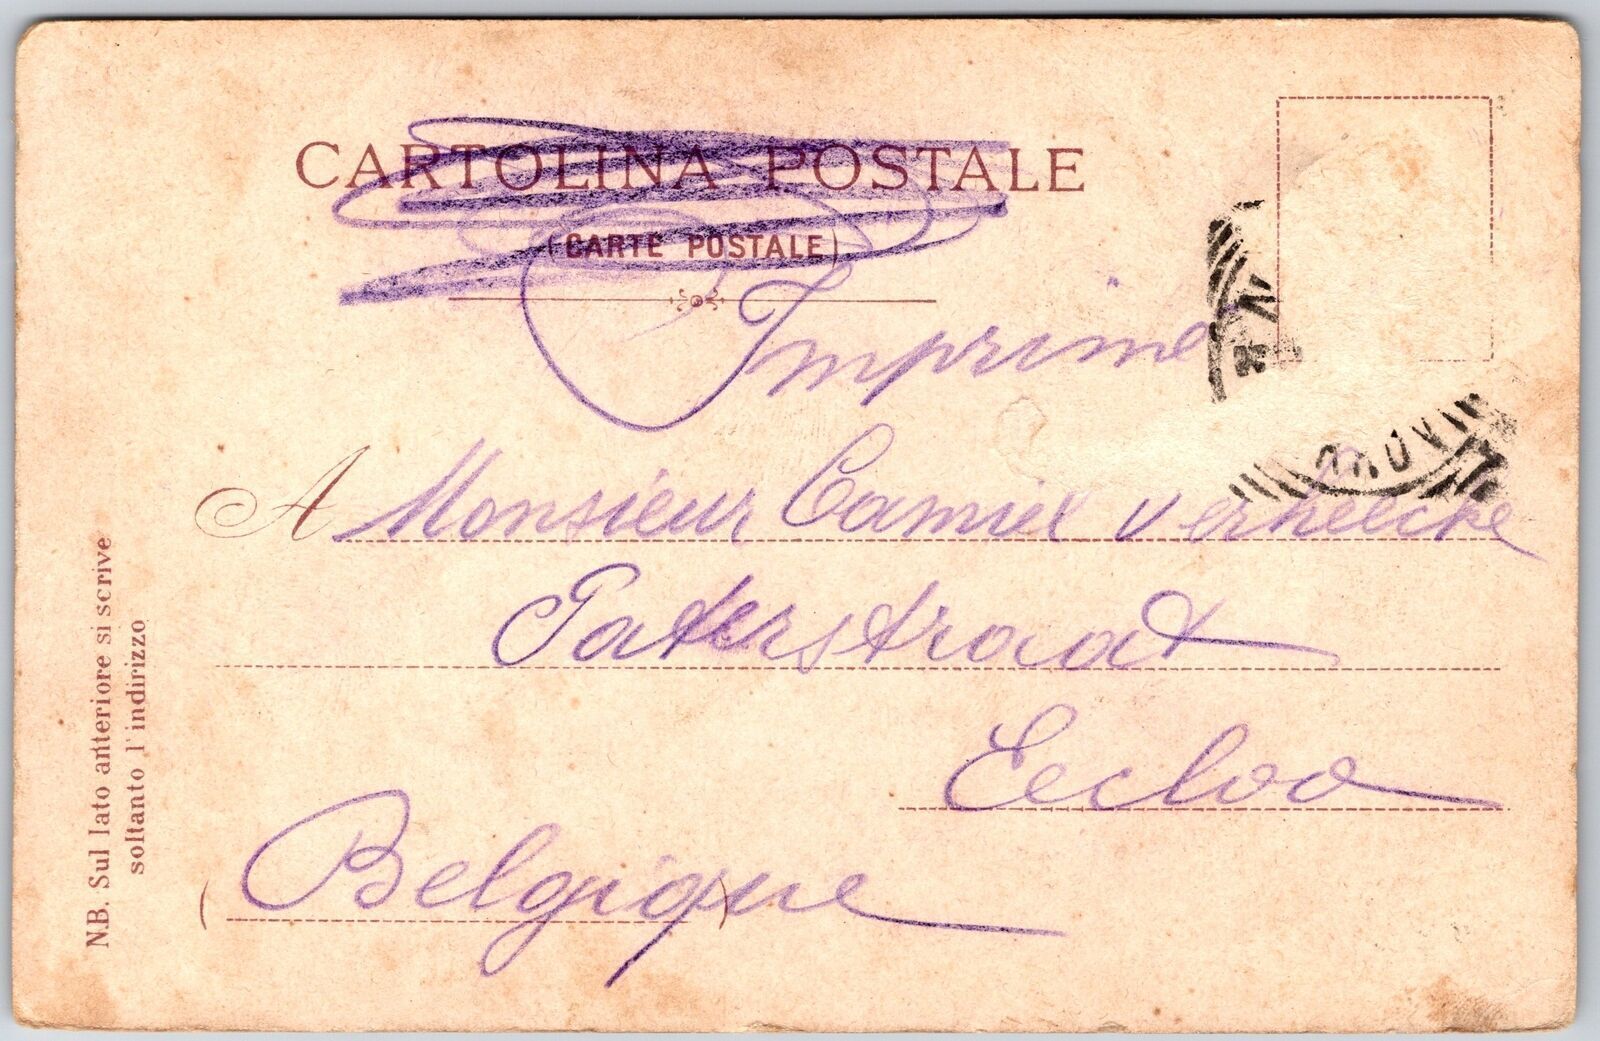 CARTOLINA POSTALE
(CARTE POSTALE)
Imprimé
A Monsieur Camiel Verheecke
Paterstraat
Eecloo
(Belgique)
N.B. Sul lato anteriore si scrive
soltanto l'indirizzo